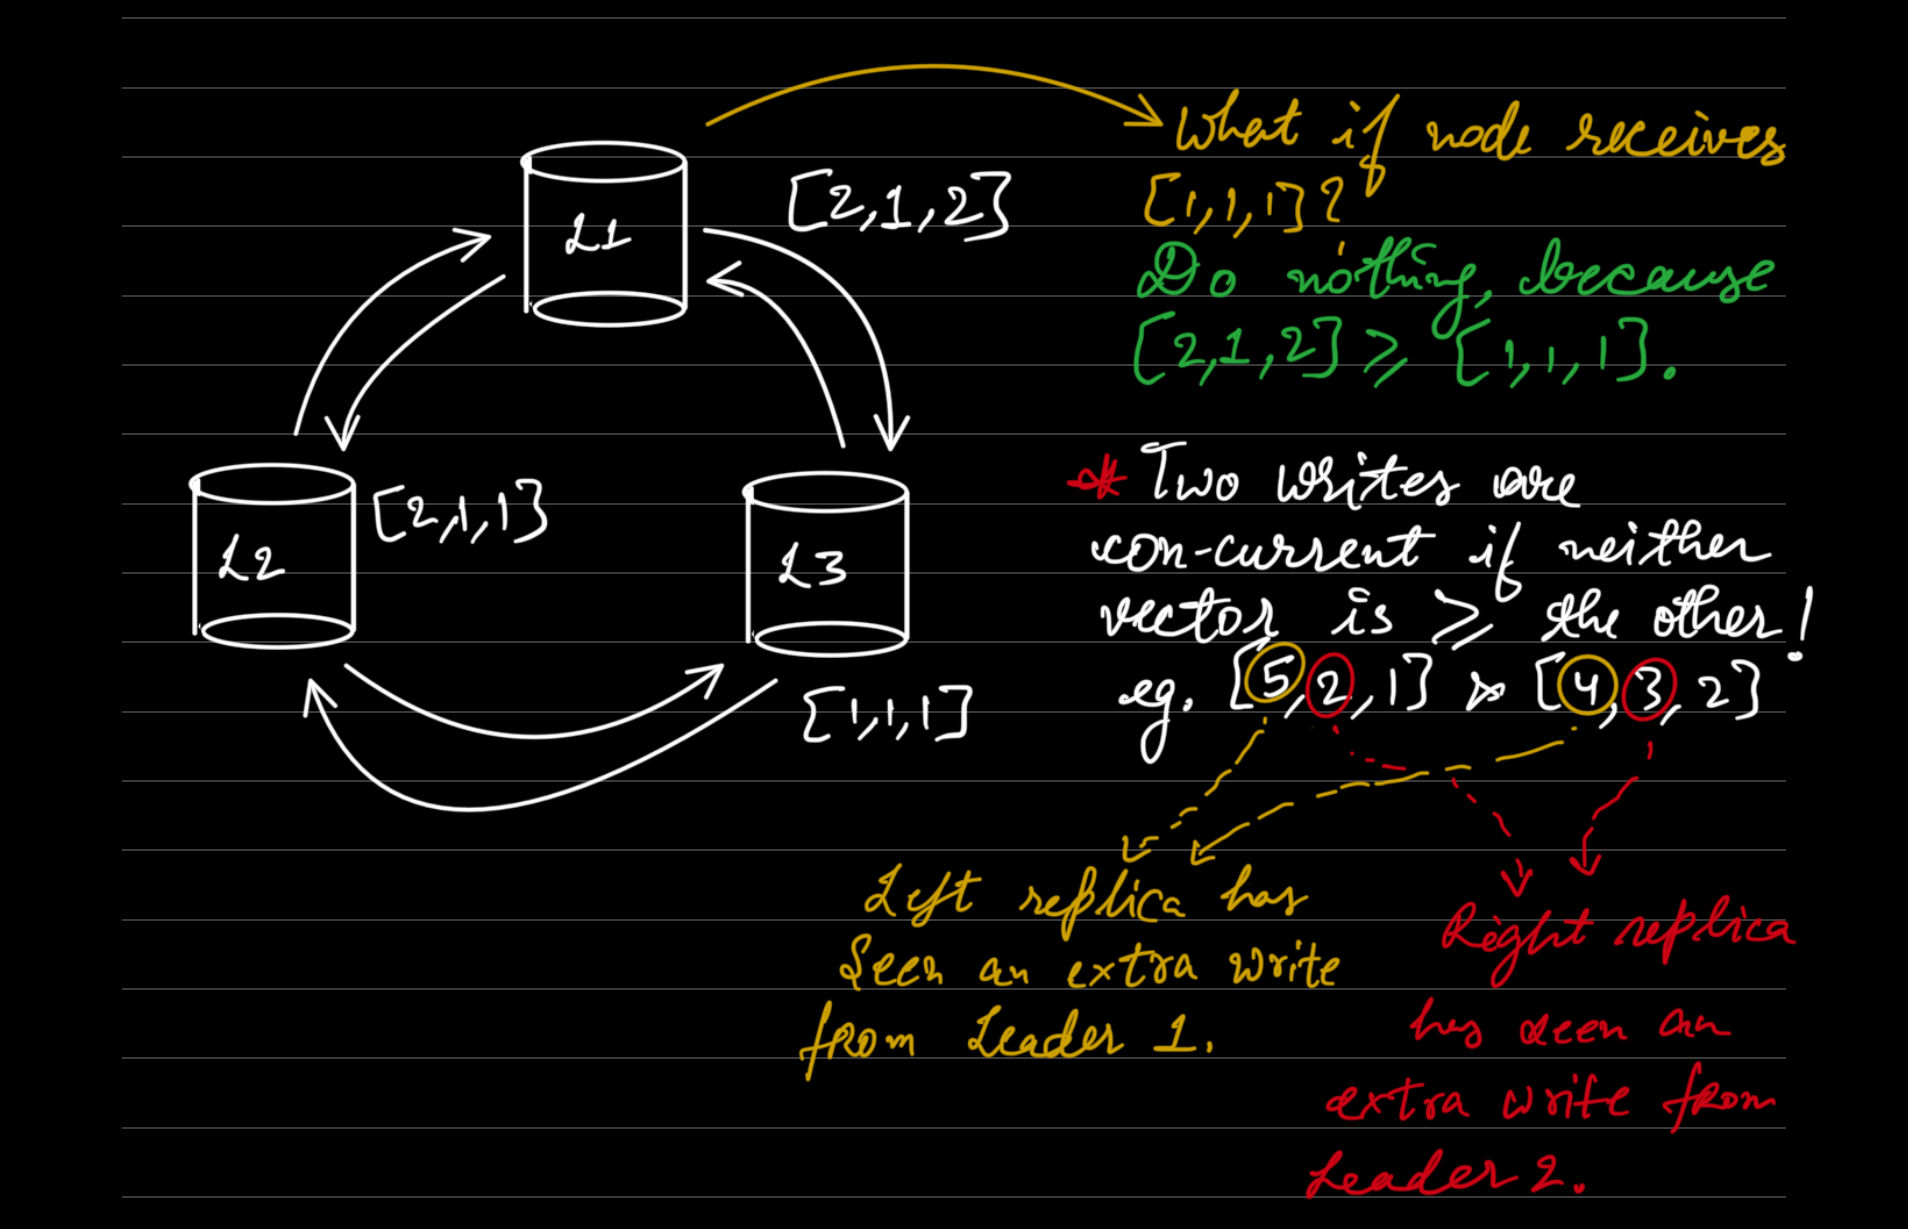 What if node receives
[1,1,1]?
Do nothing, because
[2,1,2] ⩾ [1,1,1].
L1
[2,1,2]
L2
[2,1,1]
L3
[1,1,1]
* Two writes are
con-current if neither
vector is ⩾ the other!
eg. [5,2,1] ⋈ [4,3,2]
Left replica has
Seen an extra write
from Leader 1.
Right replica
has seen an
extra write from
Leader 2.